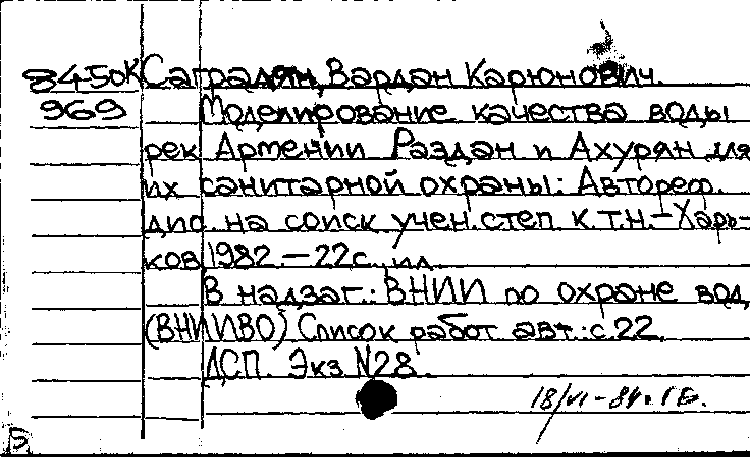 8450К Саградян, Вардан Карюнович.
969 Моделирование качества воды
рек Армении Раздан и Ахурян для
их санитарной охраны: Автореф.
дис. на соиск учен. степ к.т.н. – Харь-
ков 1982. – 22с., ил.
В надзаг.: ВНИИ по охране вод
(ВНИИВО) Список работ авт.: с.22.
ДСП. Экз N28.
18/VI-84г.
Б